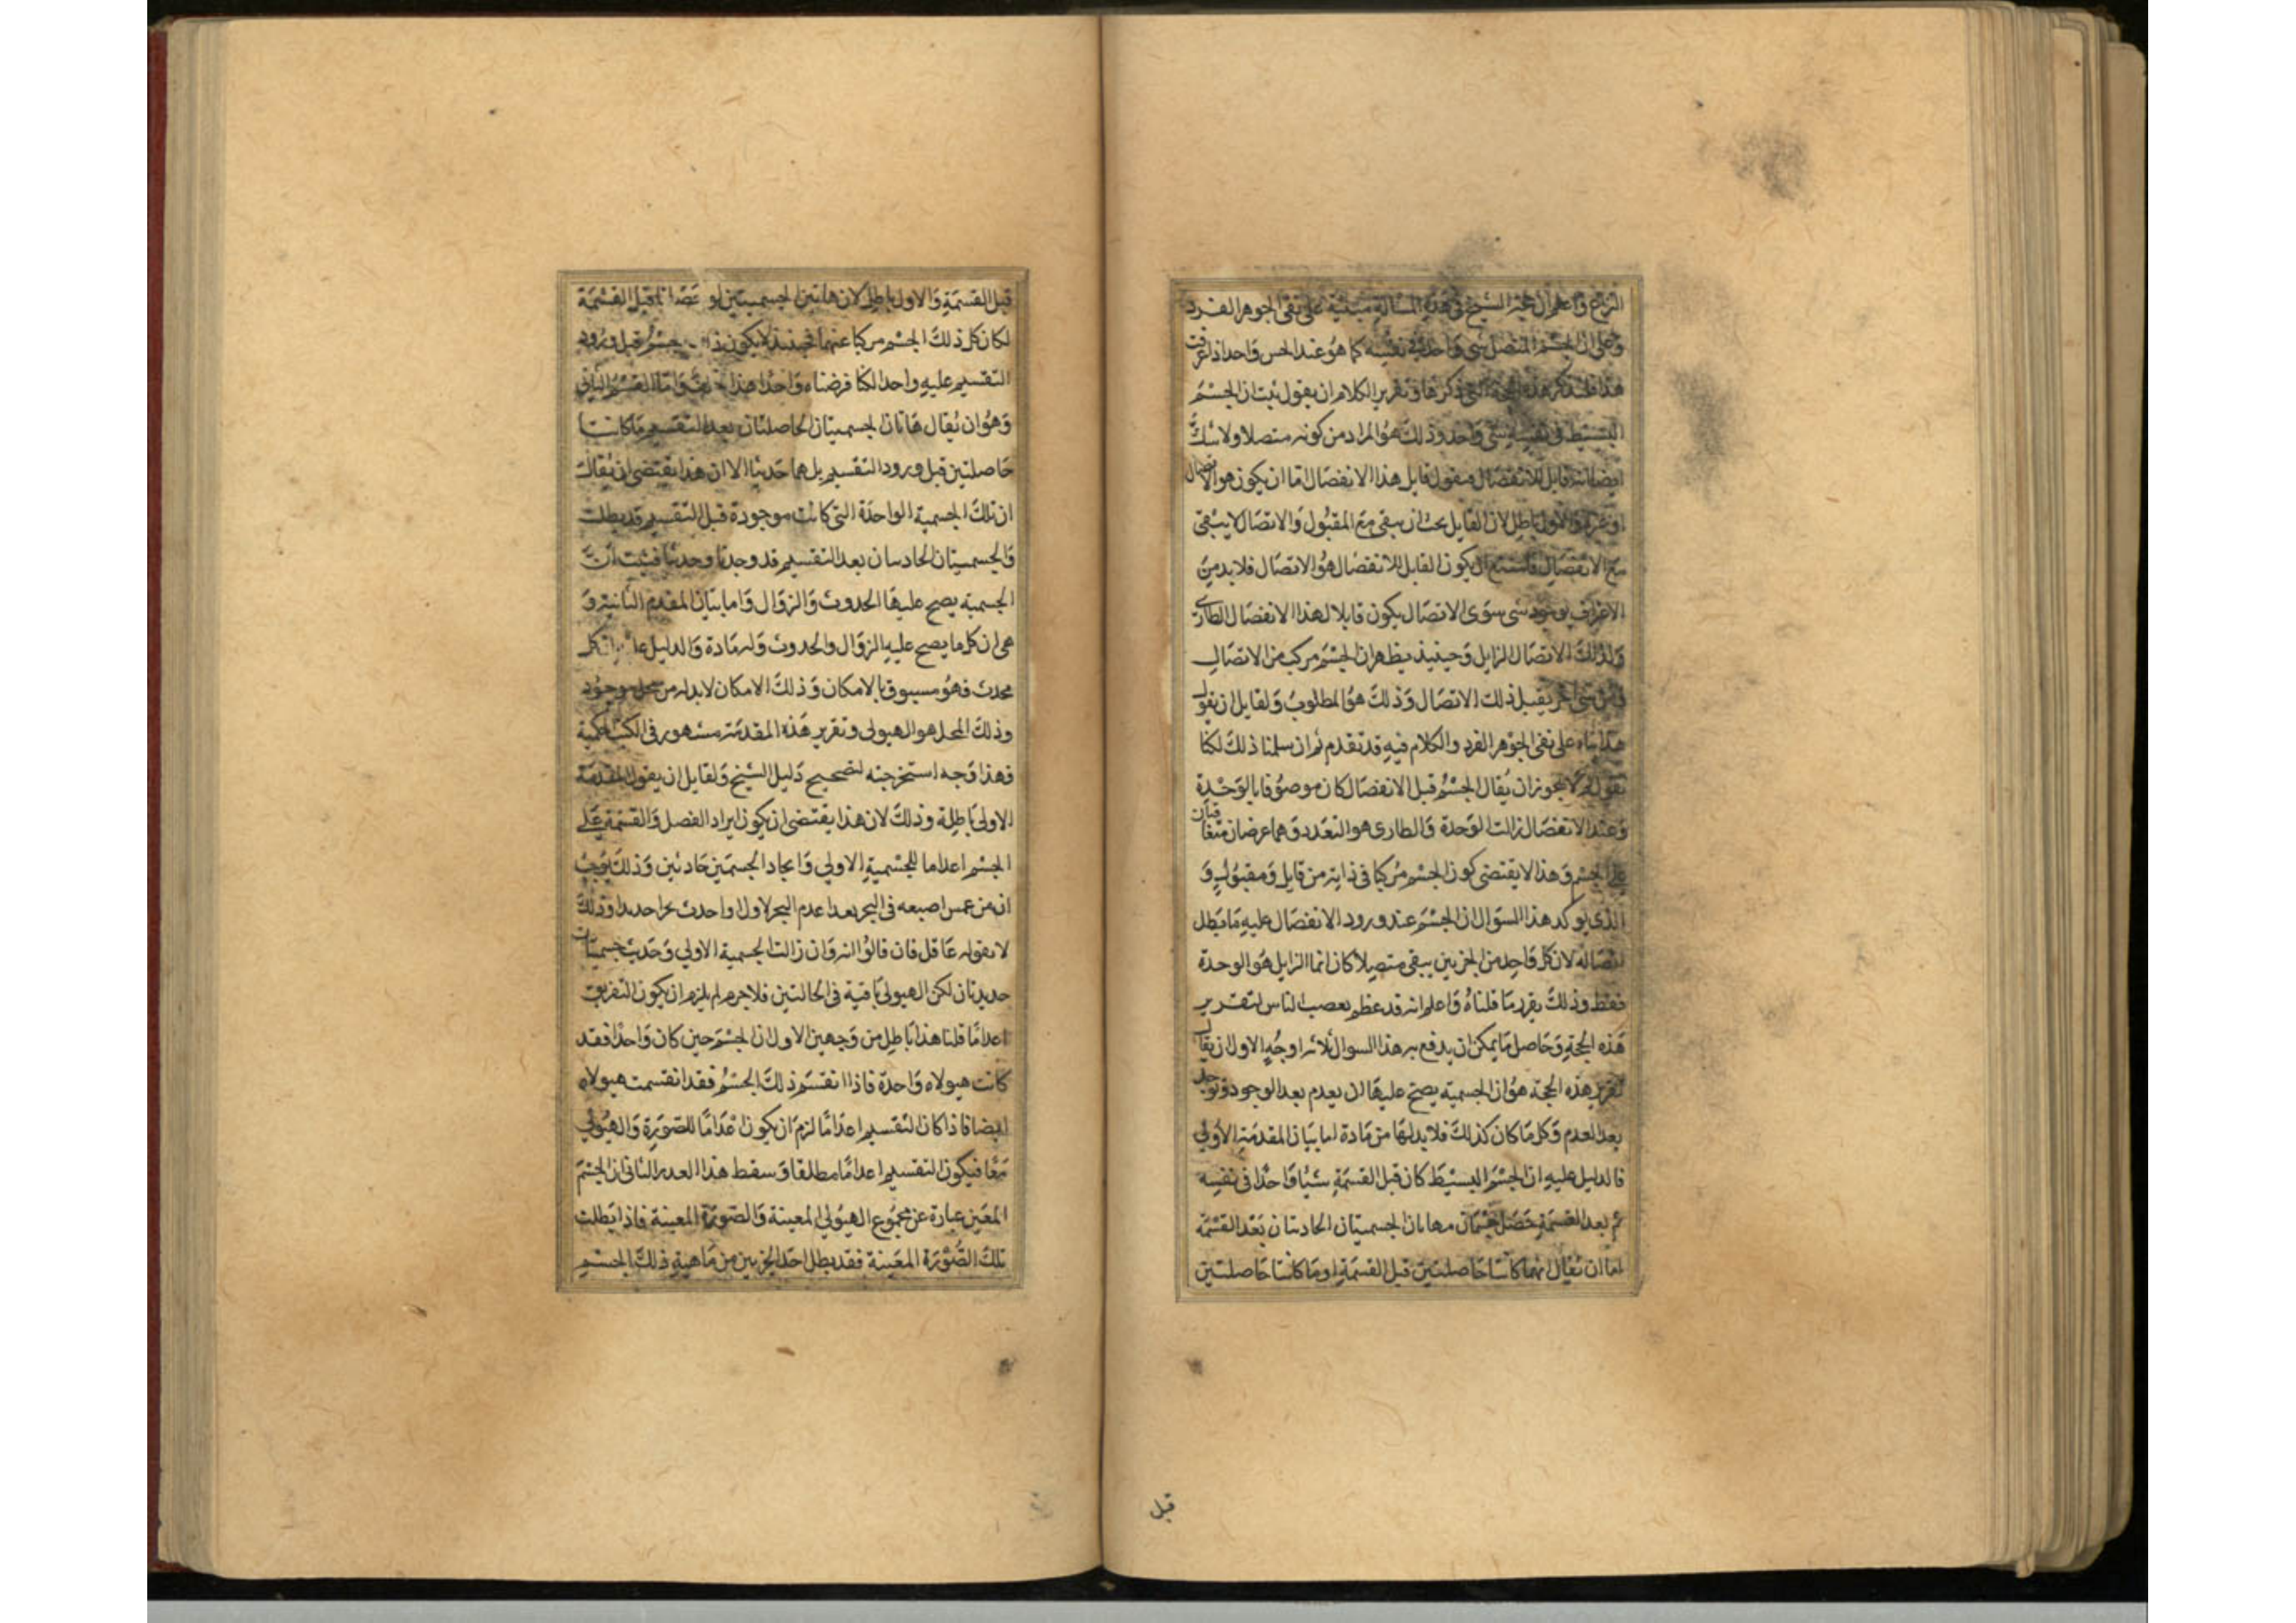 النزاع واعلم ان حجة الشيخ في هذه المسألة مبنية على نفى الجوهر الفرد
وعلى ان الجسم المتصل شى واحد فى نفسه كما هو عند الحس واحد اذا عرفت
هذا فلنذكر هذه الحجة التى ذكرها وتقرير الكلام ان يقول ثبت ان الجسم
البسيط فى نفسه شى واحد وذلك هو المراد من كونه متصلا ولا شك
ايضا انه قابل للانفصال فنقول قابل هذا الانفصال اما ان يكون هو الاتصال
او غيره والاول باطل لان القابل يجب ان يبقى مع المقبول والاتصال لا يبقى
مع الانفصال فامتنع ان يكون القابل للانفصال هو الاتصال فلا بد من
الاعتراف بوجود شى سوى الاتصال يكون قابلا لهذا الانفصال الطارى
ولذلك الاتصال الزايل وحينيذ يظهر ان الجسم مركب من الاتصال
ومن شى اخر يقبل ذلك الاتصال وذلك هو المطلوب ولقايل ان يقول
هذا بناء على نفى الجوهر الفرد والكلام فيه قد تقدم ثم ان سلمنا ذلك لكنا
نقول لم لا يجوز ان يقال الجسم قبل الانفصال كان موصوفا بالوحدة
وعند الانفصال زالت الوحدة والطارى هو التعدد وهما عرضان متعاقبان
على الجسم وهذا لا يقتضى كون الجسم مركبا فى ذاته من قابل ومقبول و
الذى يوكد هذا السوال ان الجسم عند ورود الانفصال عليه ما بطل
اتصاله لان كل واحد من الجزيين يبقى متصلا كان انما الزايل هو الوحدة
فقط وذلك يقرر ما قلناه واعلم انه قد عظم تعصب الناس لتقرير
هذه الحجة وحاصل ما يمكن ان يدفع به هذا السوال ثلاثه اوجه الاول ان يقال
تقرير هذه الحجة هو ان الجسمية يصح عليها ان يعدم بعد الوجود وتوجد
بعد العدم وكل ما كان كذلك فلا بد لها من مادة اما بيان المقدمة الاولى
فالدليل عليه ان الجسم البسيط كان قبل القسمة شيا واحدا فى نفسه
ثم بعد القسمة حصل جسمان فهاتان الجسميتان الحادثتان بعد القسمة
اما ان يقال انهما كانتا حاصلتين قبل القسمة او ما كانتا حاصلتين
قبل
قبل القسمة والاول باطل لان هاتين الجسميتين لو حصلتا قبل القسمة
لكان كل ذلك الجسم مركبا عنهما فحينئذ لا يكون ذلك الجسم قبل ورود
التقسيم عليه واحدا لكنا فرضناه واحدا هذا خلف واما القسم الثانى
وهو ان يقال هاتان الجسميتان الحاصلتان بعد التقسيم ما كانتا
حاصلتين قبل ورود التقسيم بل هما حدثتا الا ان هذا يقتضى ان يقال
ان تلك الجسمية الواحدة التى كانت موجودة قبل التقسيم قد بطلت
والجسميتان الحادثتان بعد التقسيم قد وجدتا وحدثتا فثبت ان
الجسمية يصح عليها الحدوث والزوال واما بيان المقدم الثانية و
هى ان كل ما يصح عليه الزوال والحدوث وله مادة والدليل عليه ان كل
محدث فهو مسبوق بالامكان وذلك الامكان لا بد له من محل موجود
وذلك المحل هو الهيولى وتقرير هذه المقدمة مشهور فى الكتب الحكمية
فهذا وجه استخرجته لتصحيح دليل الشيخ ولقايل ان يقول المقدمة
الاولى باطلة وذلك لان هذا يقتضى ان يكون ايراد الفصل والقسمة على
الجسم اعداما للجسمية الاولى وايجاد الجسمين حادثين وذلك يوجب
ان من غمس اصبعه فى البحر بعد اعدم البحر الاول واحدث بحرا جديدا وذلك
لا يقوله عاقل فان قالوا انه وان زالت الجسمية الاولى وحدث جسميتان
جديدتان لكن الهيولى باقية فى الحالتين فلا جرم لم يلزم ان يكون التفريق
اعداما قلنا هذا باطل من وجهين الاول ان الجسم حين كان واحدا فقد
كانت هيولاه واحدة فاذا انقسم ذلك الجسم فقد انقسمت هيولاه
ايضا فاذا كان التقسيم اعداما لزم ان يكون اعداما للصورة والهيولى
معا فيكون التقسيم اعداما مطلقا وسقط هذا العدر الثانى ان الجسم
المعين عبارة عن مجموع الهيولى المعينة والصورة المعينة فاذا بطلت
تلك الصورة المعينة فقد بطل احد الجزيين من ماهية ذلك الجسم